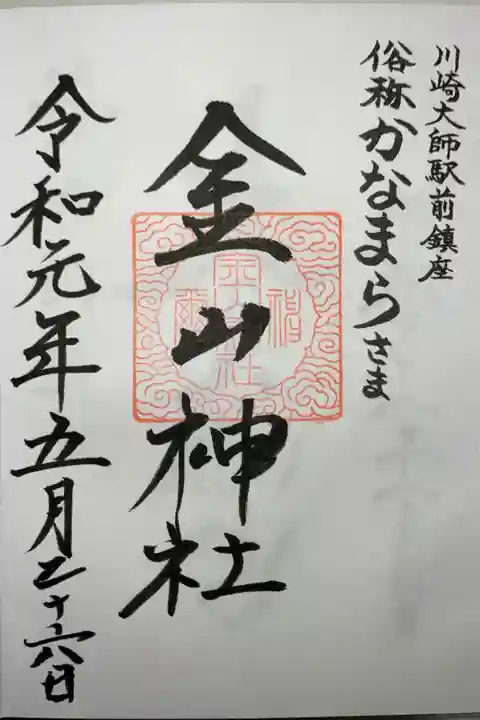 川崎大師駅前鎮座
俗称かなまらさま
金山神社
令和元年五月二十六日